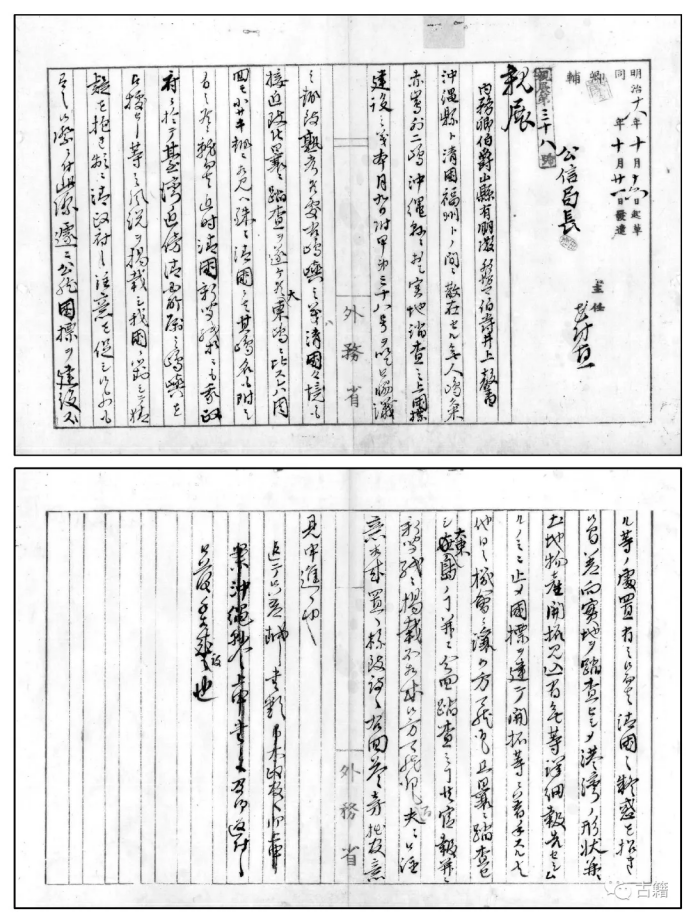 明治十八年十月　日起草
同　年十月廿一日發遣
卿
輔
公信局長
主任
親展第三十八號
親展
内務卿伯爵山縣有朋殿　外務卿伯爵井上馨
沖縄縣ト清國福州トノ間ニ散在セル無人嶋久米
赤嶋外二嶋沖縄縣ニ於テ實地踏査之上國標
建設之義本月九日付甲第　号ヲ以テ御協議
之趣致熟考候處右嶋嶼之義ハ清國國境ニモ
接近致候曩ニ踏査ヲ遂ケ候大東嶋ニ比スレハ周
回モ小サキ趣ニ相見ヘ殊ニ清國ニハ其嶋名モ附シ
有之候ニ就テハ近時清國新聞紙等ニモ我政
府ニ於テ臺灣近傍清國所屬之嶋嶼ヲ
占拠セシ等之風説ヲ掲載シ我國ニ對シテ猜
疑ヲ抱キ頻ニ清政府之注意ヲ促シ候モノモ
有之候際ニ付此際遽ニ公然國標ヲ建設ス
外務省
ル等ノ處置有之候テハ清國之疑惑ヲ招キ
候間差向實地ヲ踏査セシメ港灣ノ形状并ニ
土地物産開拓見込有無等詳細報告セシム
ルノミニ止メ國標ヲ建テ開拓等ニ着手スルハ
他日之機會ニ譲リ候方可然存候且曩ニ踏査セ
シ大東嶋之事并ニ今回踏査之事共官報并ニ
新聞紙ニ掲載不相成候方可然存候間夫々御注
意相成置候様致度候右回答旁拙官意
見申進候也
外務省